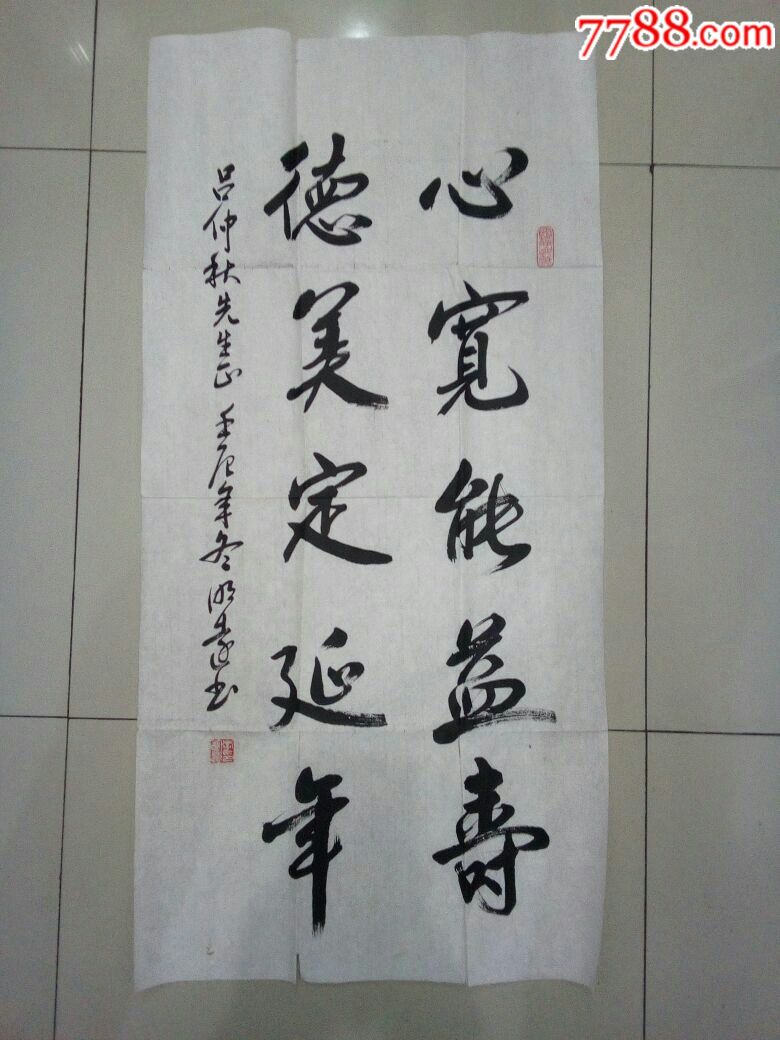 7788.com
心寛能益壽
德美定延年
吕仲秋先生正 壬辰年冬明遠书